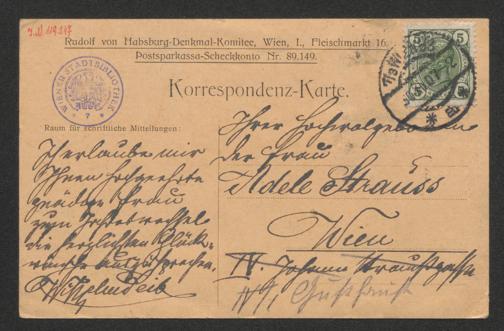 Rudolf von Habsburg-Denkmal-Komitee, Wien, I., Fleischmarkt 16.
Postsparkassa-Scheckkonto Nr. 89.149.
WIENER STADTBIBLIOTHEK
7
Korrespondenz-Karte.
5 5
Raum für schriftliche Mitteilungen:
Ich erlaube mir
Ihnen hochgeehrte
gnädige Frau
zum Jahreswechsel
die herzlichsten Glück-
wünsche auszusprechen.
Ihrer Hochwolgeborenen
der Frau
Adele Strauss
Wien
IV. Johann Straußgasse